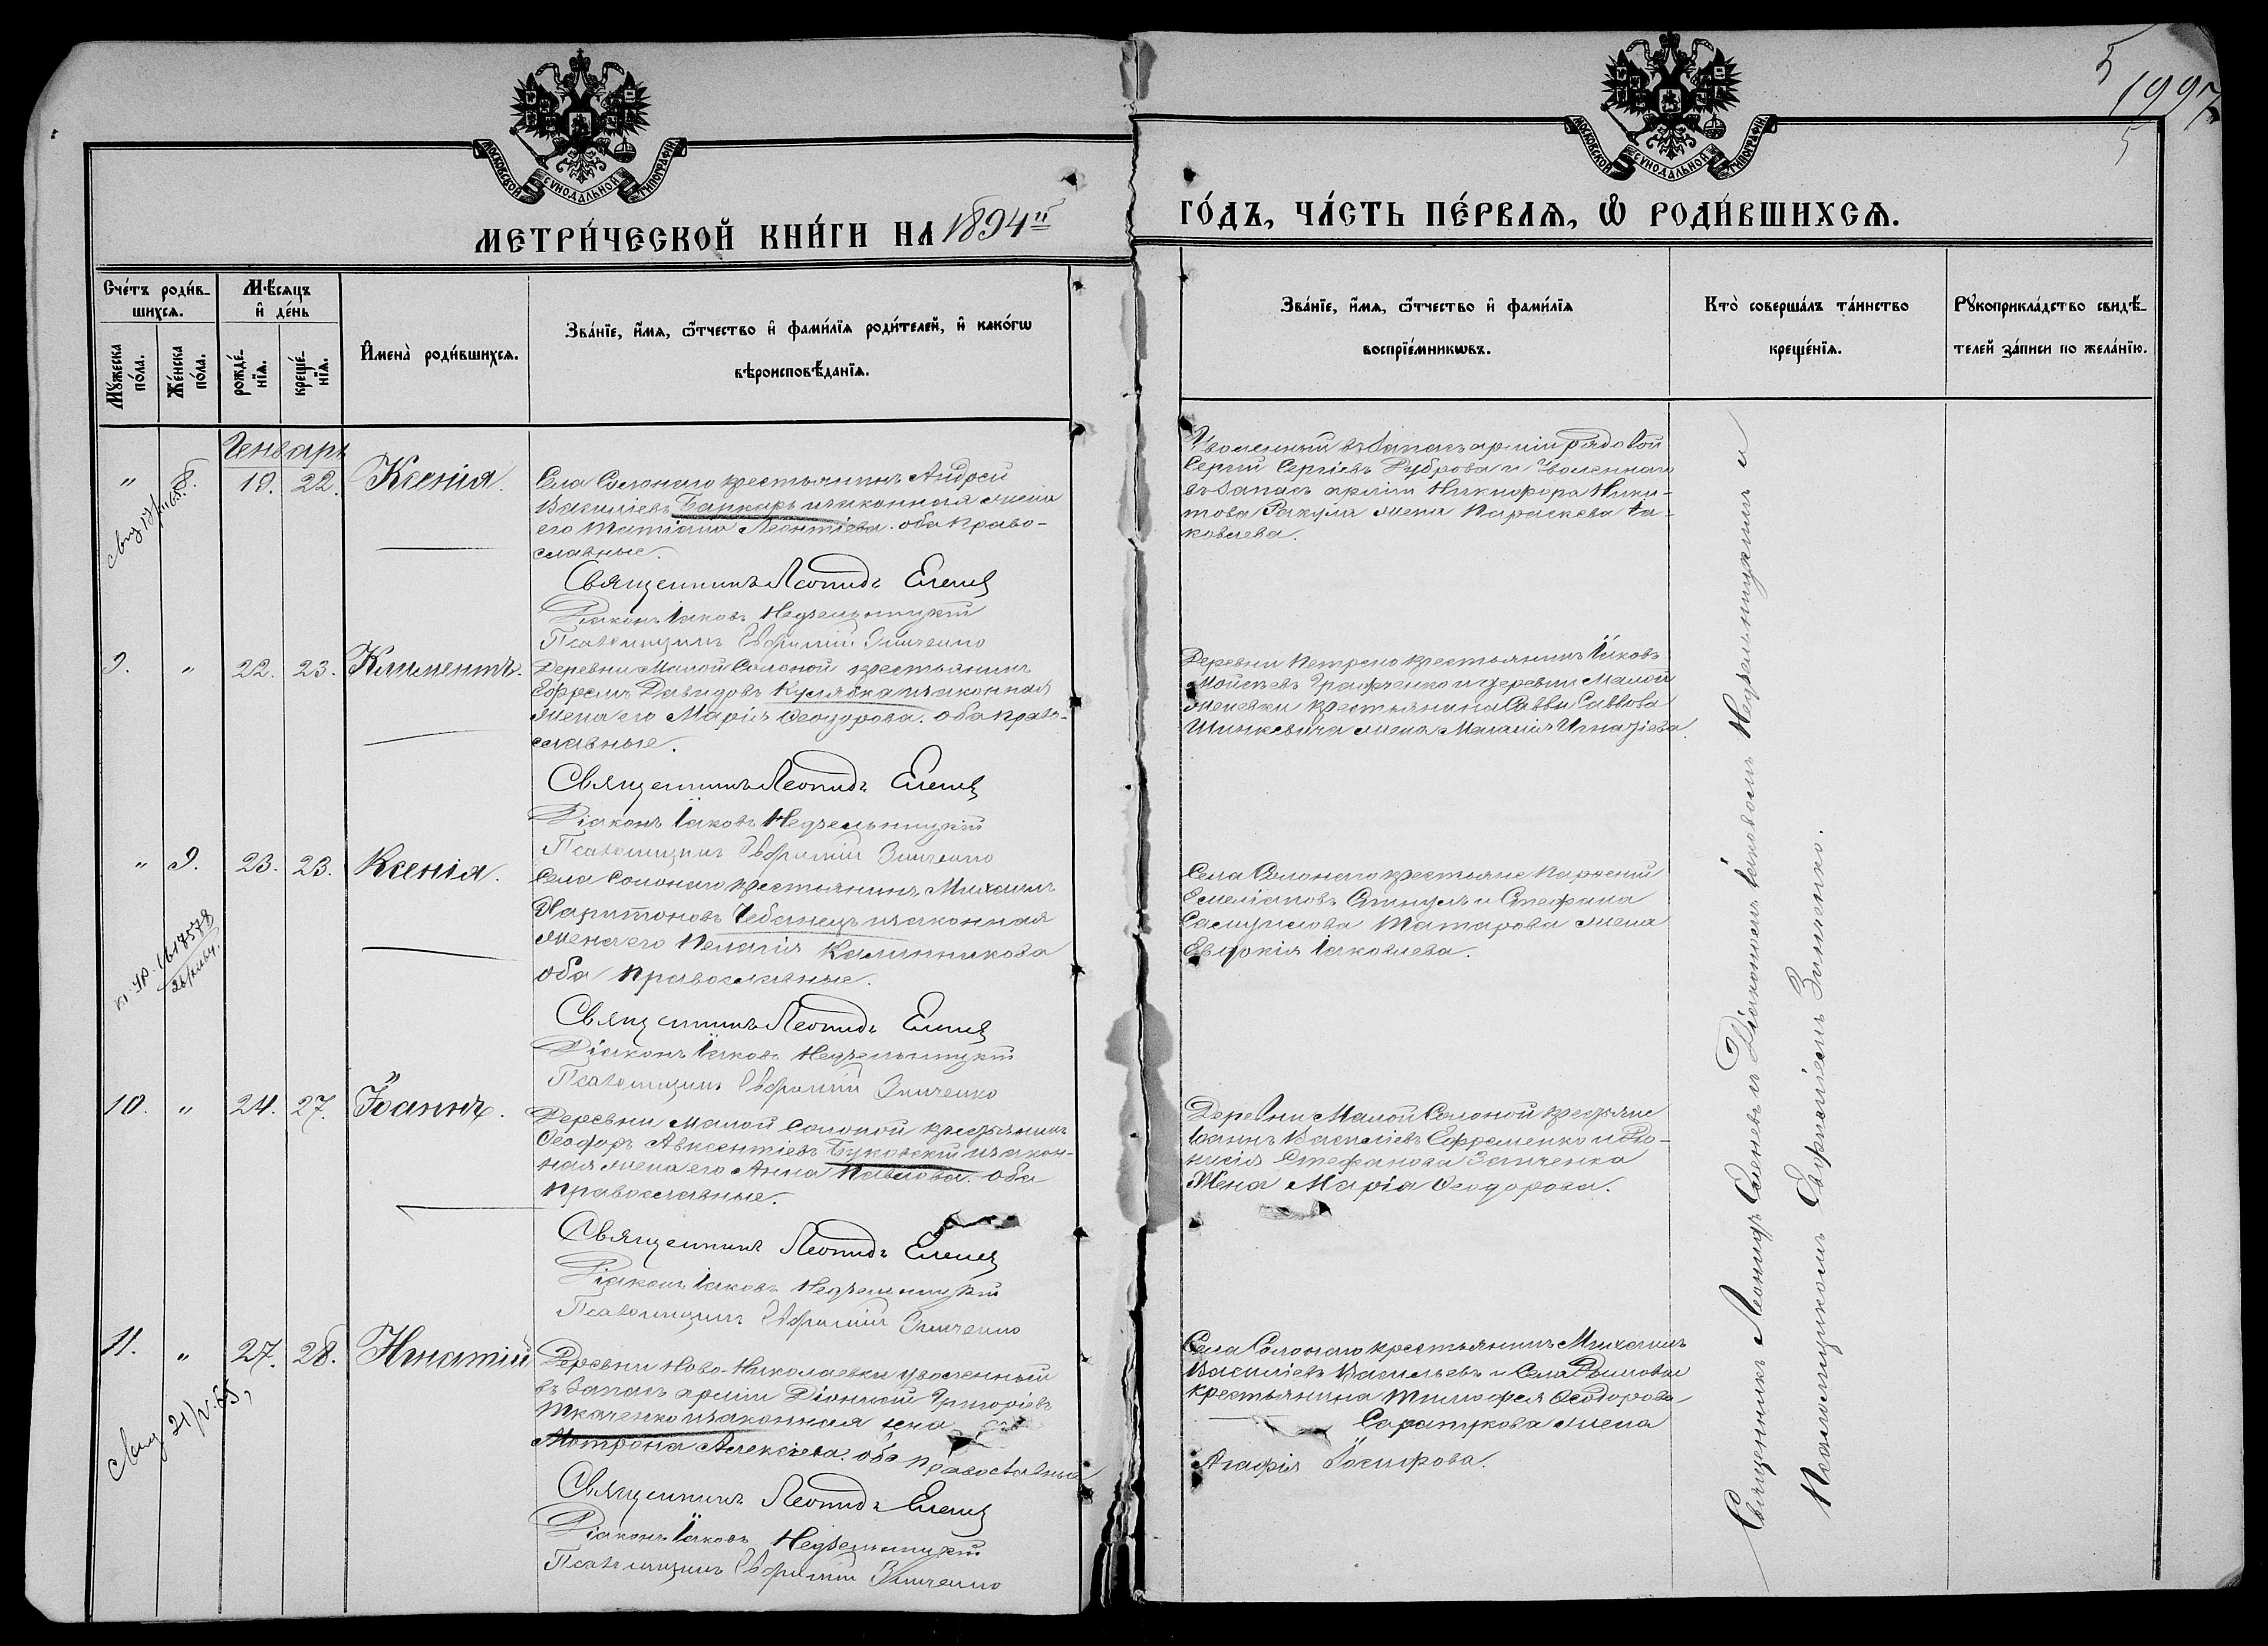 5
1997
5
МОСКОВСКОЙ СѴНОДАЛЬНОЙ ТИПОГРАФІИ
МОСКОВСКОЙ СѴНОДАЛЬНОЙ ТИПОГРАФІИ
МЕТРИ́ЧЕСКОЙ КНИ́ГИ НА 1894й
ГО́ДЪ, ЧА́СТЬ ПЕ́РВАѦ, Ѽ РОДИ́ВШИХСѦ.
Сче́тъ роди́в-
шихсѧ.
Мѣ́сѧцъ
и҆ де́нь
Мꙋ́жеска по́ла.
Же́нска по́ла.
рожде́-
нїѧ.
креще́-
нїѧ.
И҆мена̀ роди́вшихсѧ.
Зва́нїе, и҆́мѧ, ѻ҆́тчество и҆ фами́лїѧ роди́телей, и҆ како́гѡ
вѣроисповѣ́данїѧ.
Зва́нїе, и҆́мѧ, ѻ҆́тчество и҆ фами́лїѧ
воспрїе́мникѡвъ.
Кто̀ соверша́лъ та́инство
креще́нїѧ.
Рꙋкоприкла́дство свидѣ́-
телей за́писи по жела́нїю.
Генварь
" 8. 19. 22. Ксенія.
Села Солонаго крестьянинъ Андрей
Василіевъ Банкарь и законная жена
его Татіана Леонтіева. оба право-
славные.
Священникъ Леонидъ Еленев
Діаконъ Іаковъ Недзельницкій
Псаломщикъ Евфимій Зинченко
Уволенный въ запасъ арміи рядовой
Сергій Сергіевъ и Уволеннаго
въ запасъ арміи Никифора Ники-
това жена Параскева Іа-
ковлева.
9. " 22. 23. Климентъ.
Деревни Малой Солоной крестьянинъ
Ефремъ Давидовъ Кулябка и законная
жена его Марія Ѳеодорова. оба право-
славные.
Священникъ Леонидъ Еленев
Діаконъ Іаковъ Недзельницкій
Псаломщикъ Евфимій Зинченко
Деревни Петрено крестьянинъ Іаковъ
Мойсеевъ и деревни Малой
крестьянина Саввы Саввова
Шинкевича жена Меланія Игнатіева.
" 9. 23. 23. Ксенія.
Села Солонаго крестьянинъ Михаилъ
Харитоновъ Чебанецъ и законная
жена его Пелагія Калинникова
оба православные.
Священникъ Леонидъ Еленев
Діаконъ Іаковъ Недзельницкій
Псаломщикъ Евфимій Зинченко
Села Солонаго крестьяне Парѳеній
Емеліановъ и Стефана
Самуилова Татарова жена
Евдокія Іаковлева.
10. " 24. 27. Іоаннъ.
Деревни Малой Солоной крестьянинъ
Ѳеодоръ Авксентіевъ Буковскій и закон-
ная жена его Анна Павлова. оба
православные.
Священникъ Леонидъ Еленев
Діаконъ Іаковъ Недзельницкій
Псаломщикъ Евфимій Зинченко
Деревни Малой Солоной крестьяне
Іоаннъ Василіевъ Ефременко и Діо-
нисія Стефанова Запченка
жена Марія Ѳеодорова.
11. " 27. 28. Игнатій
Деревни Ново-Николаевки уволенный
въ запасъ арміи Діонисій Григоріевъ
Ткаченко и законная жена
Матрона Алексіева. оба православные
Священникъ Леонидъ Еленев
Діаконъ Іаковъ Недзельницкій
Псаломщикъ Евфимій Зинченко
Села Солонаго крестьянинъ Михаилъ
Василіевъ Васильевъ и Села
крестьянина Тимофея Ѳеодорова
жена
Агафія Іосифова.
Священникъ Леонидъ Еленевъ и Діакономъ Іаковомъ Недзельницкимъ и
Псаломщикомъ Евфиміемъ Зинченко.